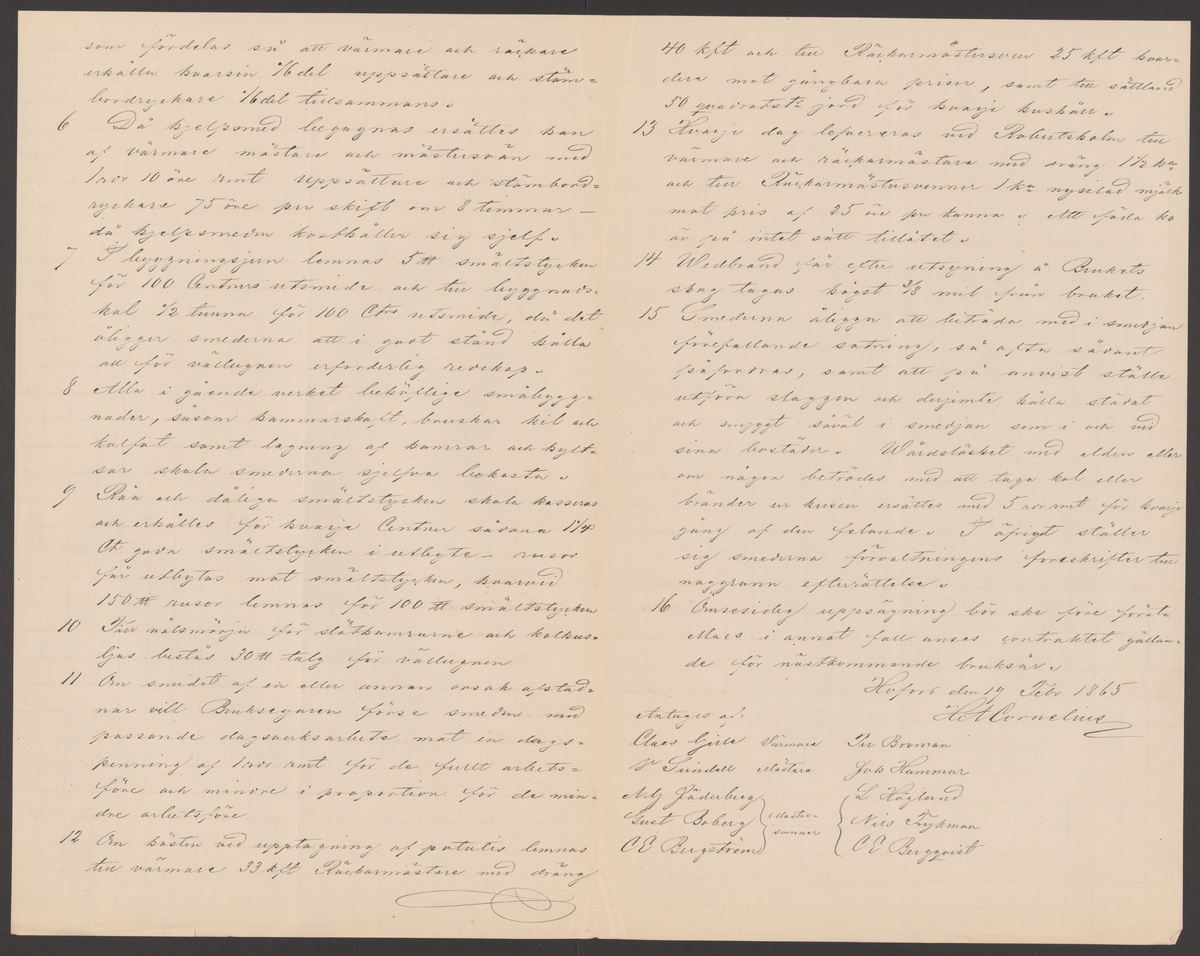 som fördelas så att värmare och räckare
erhålla hvarsin 1/6 del uppsättare och stäm-
bordryckare 1/6 del tillsammans.
6 Då hjelpsmed begagnas ersättes han
af värmare mästare och mästersven med
1 rdr 10 öre rmt uppsättare och stämbord-
ryckare 75 öre per skift om 8 timmar —
då hjelpsmeden kosthåller sig sjelf.
7 I byggningsjern lemnas 5 ℔ smältstycken
för 100 Centners utsmide och till byggnads-
kol 1/2 tunna för 100 Ctrs utsmide, då det
åligger smederna att i godt stånd hålla
all för vällugnen erforderlig redskap.
8 Alla i gående verket behöflige småbygg-
nader, såsom hammarskaft, bruskar kil och
kolfat samt lagning af hamrar och hylt-
sor skola smederna sjelfva bekosta.
9 Råa och dåliga smältstycken skola kasseras
och erhålles för hvarje Centner sådana 1 1/4
Ctr goda smältstycken i utbyte — rusor
får utbytas mot smältstycken, hvarvid
150 ℔ rusor lemnas för 100 ℔ smältstycken
10 Till nålsmörja för stäthamrarne och kolhus-
ljus bestås 30 ℔ talg för vällugnen
11 Om smidet af en eller annan orsak afstad-
nar vill Bruksegaren förse smeden med
passande dagsverksarbete mot en dags-
penning af 1 rdr rmt för de fullt arbets-
före och mindre i proportion för de min-
dre arbetsföre
12 Om hösten vid upptagning af potatis lemnas
till värmare 33 kft Räckarmästare med dräng
40 kft och till Räckarmästersven 25 kft hvar-
dera mot gångbara priser, samt till sättland
50 quadratstr jord för hvarje hushåll.
13 Hvarje dag lefvereras vid Robertsholm till
värmare och räckarmästare med dräng 1 1/2 ka
och till Räckarmästersvenner 1 ka nysilad mjölk
mot pris af 25 öre per kanna. Att föda ko
är på intet sätt tillåtet.
14 Wedbrand får efter utsyning å Brukets
skog tagas högst 3/8 mil från bruket.
15 Smederna åligger att biträda med i smedjan
förefallande satning, så ofta sådant
påfordras, samt att på anvist ställe
utföra slaggen och derjemte hålla städat
och snyggt såväl i smedjan som i och vid
sina bostäder. Wårdslöshet med elden eller
om någon beträdes med att taga kol eller
bränder ur husen ersättes med 5 rdr rmt för hvarje
gång af den felande. I öfrigt ställer
sig smederna förvaltningens föreskrifter till
noggrann efterrättelse.
16 Ömsesidig uppsägning bör ske före första
Mars i annat fall anses contraktet gällan-
de för nästkommande bruksår.
Hofors den 19 Febr 1865
HA Cornelius
Antages af:
Claes Gille Värmare Per Broman
P Lindall Mästare Joh Hammar
Mtg Jäderberg L Höglund
Gust Boberg Mäster-
svenner Nils Frykman
CE Bergström CE Bergqvist